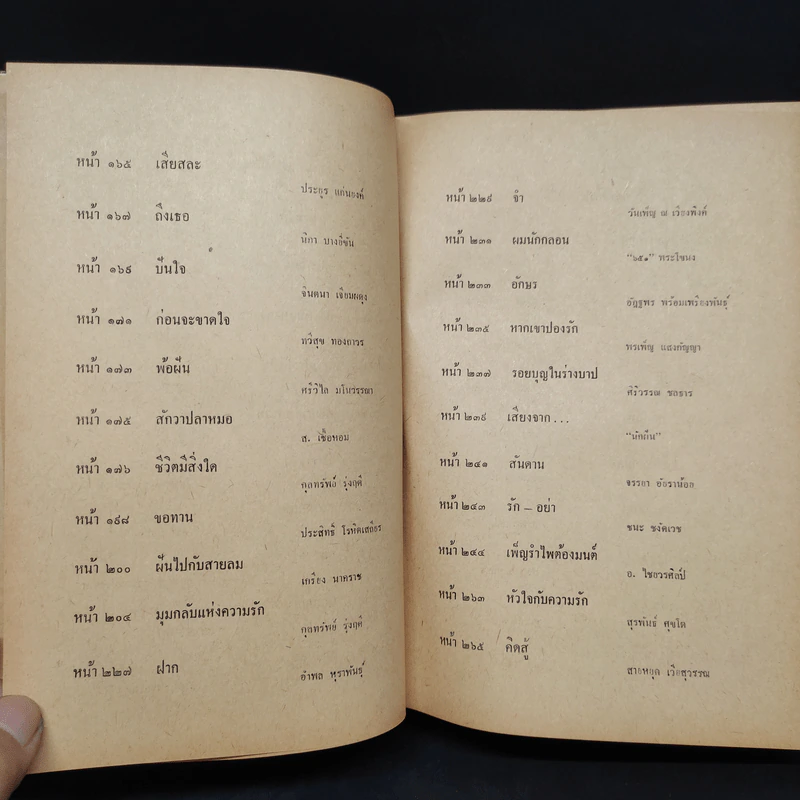 หน้า ๑๖๕ เสียสละ
ประกูร แก่นยงค์
หน้า ๑๖๗ ถึงเธอ
นิภา บางยี่ขัน
หน้า ๑๖๙ ปันใจ
จินตนา เจียมผดุง
หน้า ๑๗๑ ก่อนจะขาดใจ
ทวีสุข ทองถาวร
หน้า ๑๗๓ พ้อฝัน
ศรีวิไล มโนวรรณา
หน้า ๑๗๕ สักวาปลาหมอ
ส. เชื้อหอม
หน้า ๑๗๖ ชีวิตมีสิ่งใด
กุลทรัพย์ รุ่งฤดี
หน้า ๑๙๘ ขอทาน
ประสิทธิ์ โรหิตเสถียร
หน้า ๒๐๐ ฝันไปกับสายลม
เกรียง นาคราช
หน้า ๒๐๔ มุมกลับแห่งความรัก
กุลทรัพย์ รุ่งฤดี
หน้า ๒๒๗ ฝาก
อำพล หุราพันธุ์
หน้า ๒๒๙ จำ
วันเพ็ญ ณ เวียงพิงค์
หน้า ๒๓๑ ผมนักกลอน
“๖๕๑” พระโขนง
หน้า ๒๓๓ อักษร
อัฎฐพร พร้อมเพรียงพันธุ์
หน้า ๒๓๕ หากเขาปองรัก
พรเพ็ญ แสงกัญญา
หน้า ๒๓๗ รอยบุญในร่างบาป
ศิริวรรณ ชลธาร
หน้า ๒๓๙ เสียงจาก...
“นักฝัน”
หน้า ๒๔๑ สันดาน
จรรยา
หน้า ๒๔๓ รัก – อย่า
ชนะ ชงัดเวช
หน้า ๒๔๔ เพ็ญรำไพต้องมนต์
อ. ไชยวรศิลป์
หน้า ๒๖๓ หัวใจกับความรัก
สุรพันธ์ ศุขโต
หน้า ๒๖๕ คิดสู้
สายหยุด เวียสุวรรณ